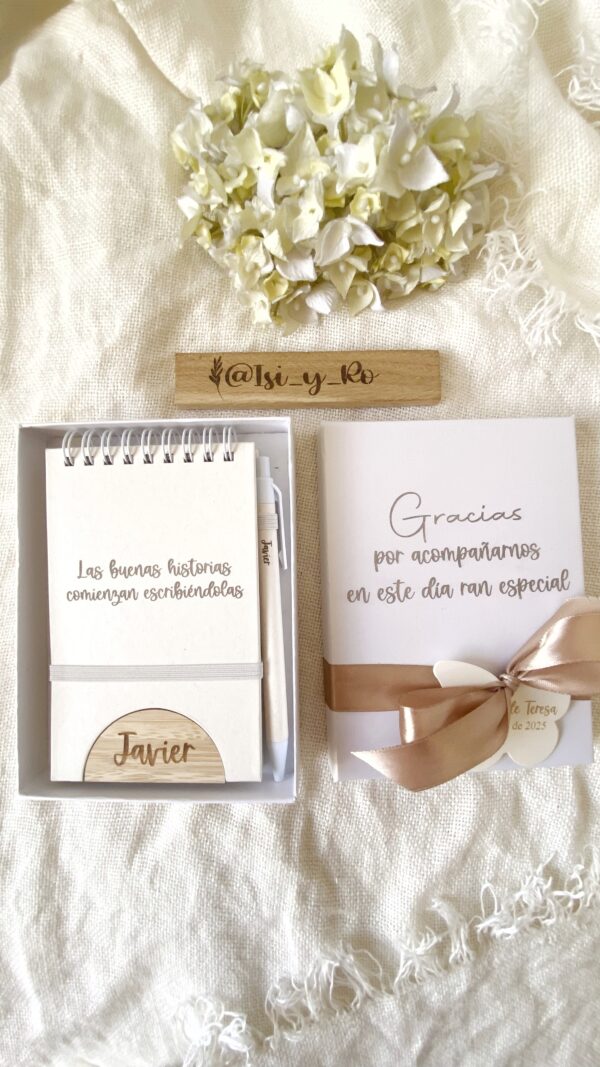 @Isi_y_Ro
Las buenas historias
comienzan escribiéndolas
Javier
Javier
Gracias
por acompañarnos
en este día ran especial
Teresa
de 2025